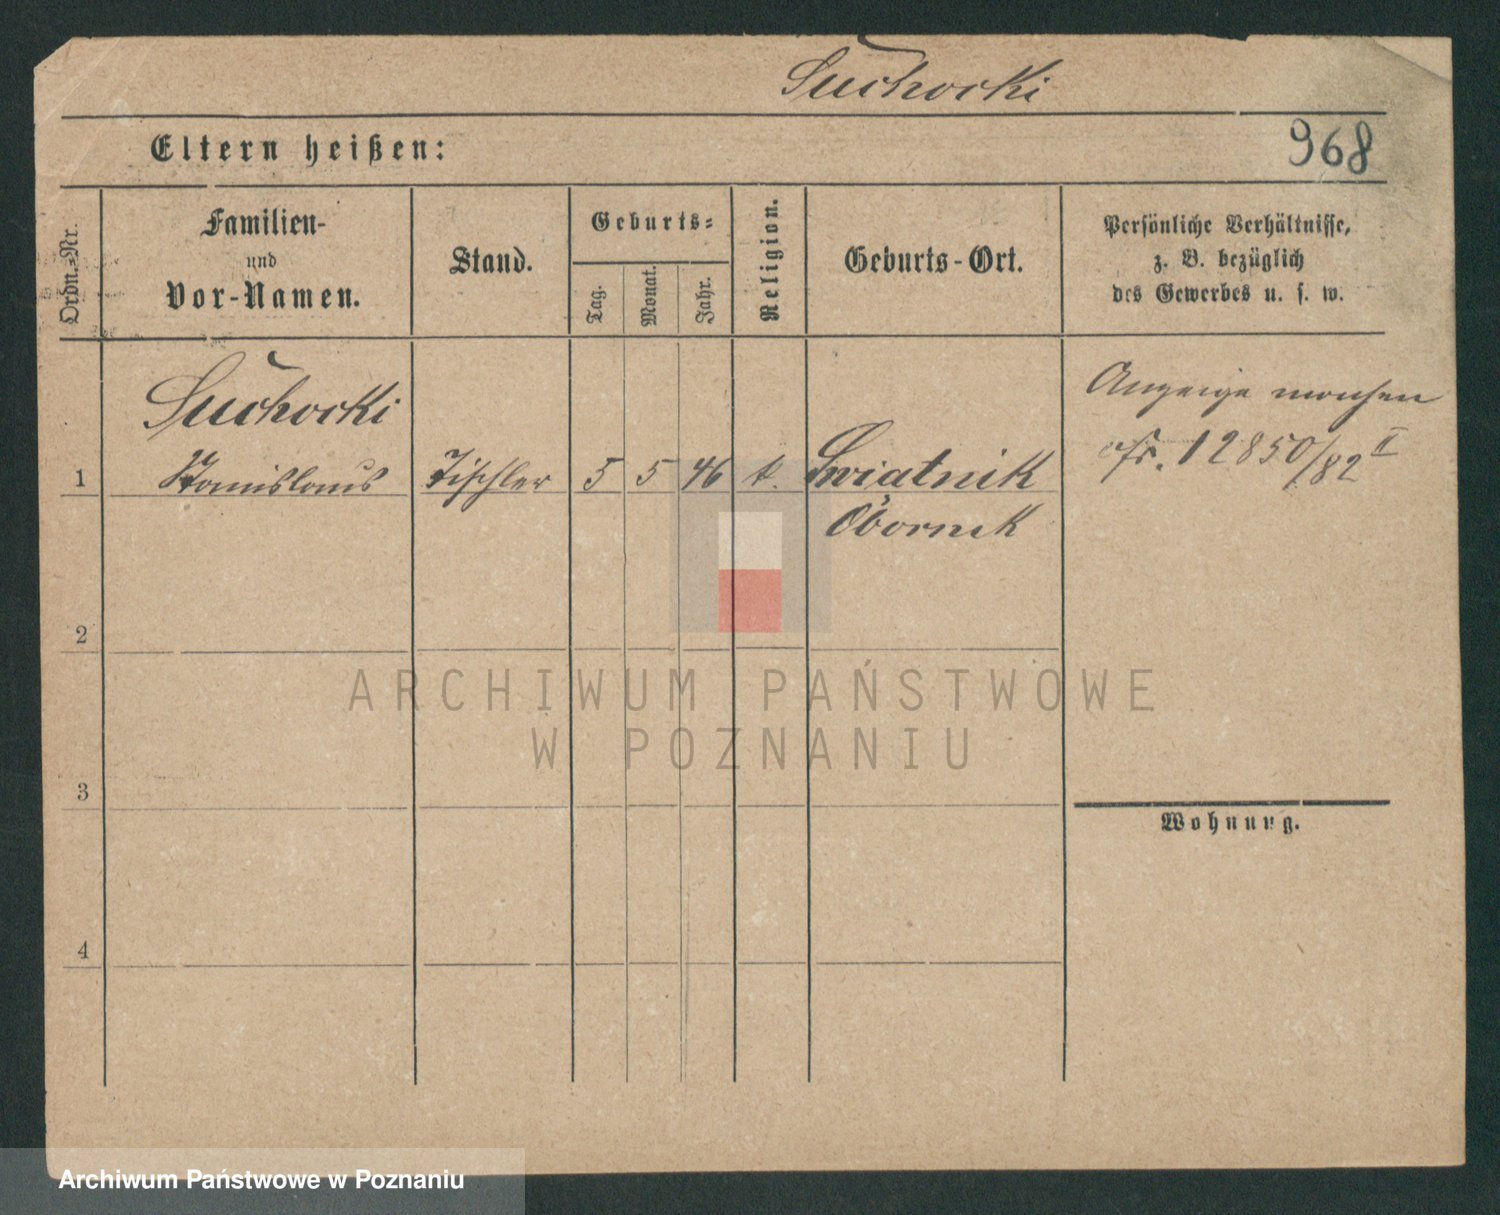 Suchocki
968
Eltern heißen:
Ordn.-Nr.
Familien-
und
Vor-Namen.
Stand.
Geburts-
Tag.
Monat.
Jahr.
Religion.
Geburts-Ort.
Persönliche Verhältnisse,
z. B. bezüglich
des Gewerbes u. s. w.
Suchocki
1 Stanislaus Tischler 5 5 46 k. Swiatnik
Obornik
Anzeige
12850/82 II
2
3
4
Wohnung.
ARCHIWUM PAŃSTWOWE
W POZNANIU
Archiwum Państwowe w Poznaniu